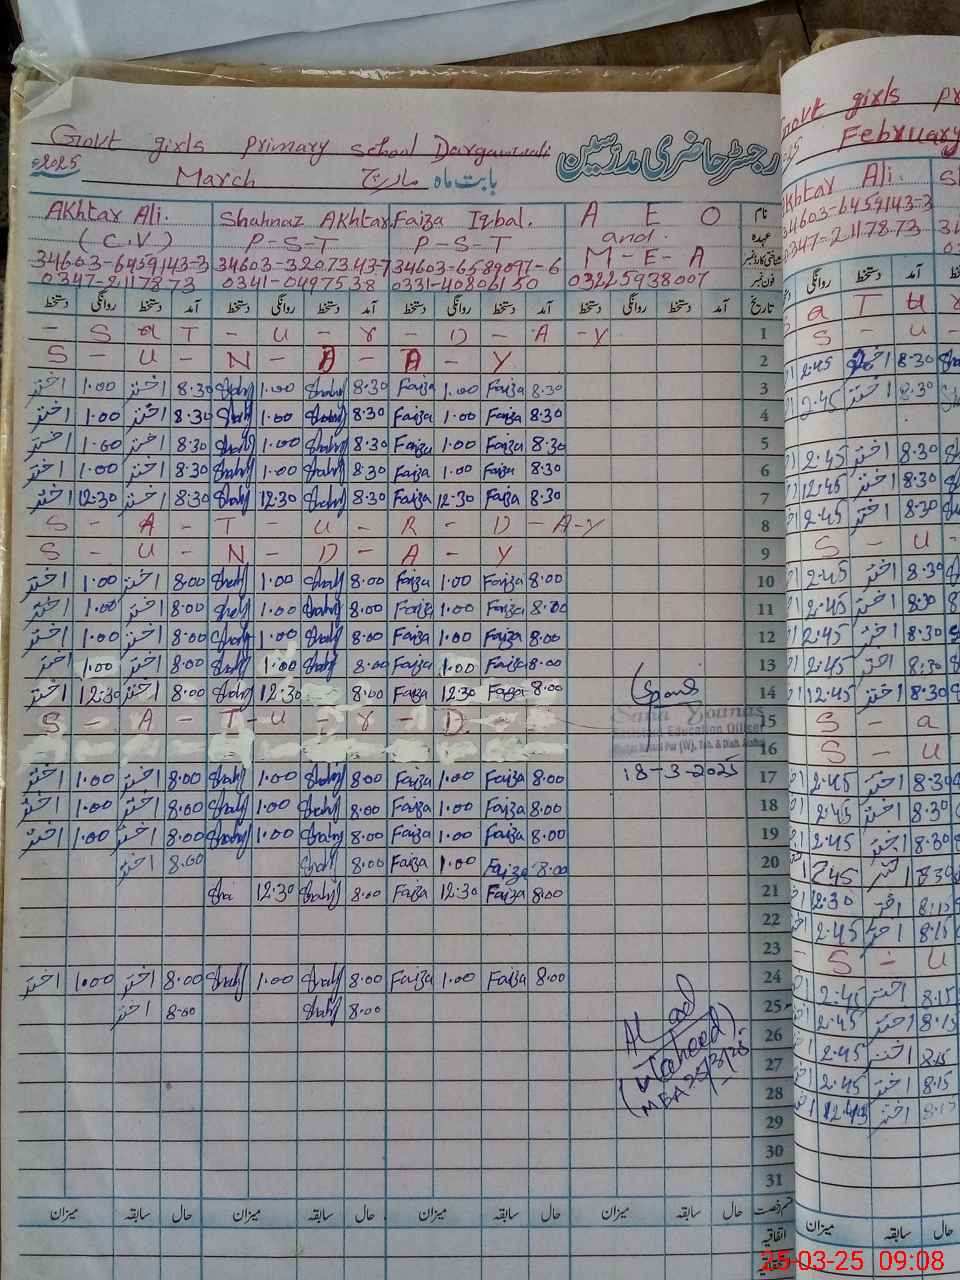 Govt girls Primary school Dargawali رجسٹر حاضری مدرسین
2025 March مارچ بابت ماہ
Akhtar Ali. Shahnaz Akhtar Faiza Iqbal. A E O نام
(C.V) P-S-T P-S-T and. عہدہ
34603-6459143-3 34603-3207343-7 34603-6589097-6 M-E-A
0347-2117873 0341-0497538 0331-40806150 03225938007 فون نمبر
دستخط روانگی دستخط آمد دستخط روانگی دستخط آمد دستخط روانگی دستخط آمد دستخط روانگی دستخط آمد تاریخ
- S a T - U - r - D - A - Y 1
S - U - N - D - A - Y 2
اختر 1.00 اختر 8.30 Shahj 1.00 Shahj 8.30 Faiza 1.00 Faiza 8.30 3
اختر 1.00 اختر 8.30 Shahj 1.00 Shahj 8.30 Faiza 1.00 Faiza 8.30 4
اختر 1.00 اختر 8.30 Shahj 1.00 Shahj 8.30 Faiza 1.00 Faiza 8.30 5
اختر 1.00 اختر 8.30 Shahj 1.00 Shahj 8.30 Faiza 1.00 Faiza 8.30 6
اختر 12.30 اختر 8.30 Shahj 12.30 Shahj 8.30 Faiza 12.30 Faiza 8.30 7
S - A - T - U - R - D - A - Y 8
S - U - N - D - A - Y 9
اختر 1.00 اختر 8.00 Shahj 1.00 Shahj 8.00 Faiza 1.00 Faiza 8.00 10
اختر 1.00 اختر 8.00 Shahj 1.00 Shahj 8.00 Faiza 1.00 Faiza 8.00 11
اختر 1.00 اختر 8.00 Shahj 1.00 Shahj 8.00 Faiza 1.00 Faiza 8.00 12
اختر 1.00 اختر 8.00 Shahj 1.00 Shahj 8.00 Faiza 1.00 Faiza 8.00 13
اختر 12.30 اختر 8.00 Shahj 12.30 8.00 Faiza 12.30 Faiza 8.00 14
S - A - T - U - r - D - Sana Younas 15
Education Officer
16
18-3-2025
اختر 1.00 اختر 8.00 Shahj 1.00 Shahj 8.00 Faiza 1.00 Faiza 8.00 17
اختر 1.00 اختر 8.00 Shahj 1.00 Shahj 8.00 Faiza 1.00 Faiza 8.00 18
اختر 1.00 اختر 8.00 Shahj 1.00 Shahj 8.00 Faiza 1.00 Faiza 8.00 19
اختر 8.00 Shahj 8.00 Faiza 1.00 Faiza 8.00 20
Sha 12.30 Shahj 8.00 Faiza 12.30 Faiza 8.00 21
22
23
اختر 1.00 اختر 8.00 Shahj 1.00 Shahj 8.00 Faiza 1.00 Faiza 8.00 24
اختر 8.00 Shahj 8.00 25
26
(Waheed) 27
MEA 25/3/25 28
29
30
31
میزان سابقہ حال میزان سابقہ حال میزان سابقہ حال میزان سابقہ حال قسم رخصت
اتفاقیہ
Govt girls Pr
February
Akhtar Ali
34603-6459143-3
0347-2117873
روانگی دستخط آمد
S a T u r
S - u -
2.45 اختر 8.30
2.45 اختر 8.30
2.45 اختر 8.30
12.45 اختر 8.30
2.45 اختر 8.30
S - u -
2.45 اختر 8.30
2.45 اختر 8.30
2.45 اختر 8.30
2.45 اختر 8.30
12.45 اختر 8.30
S - a
S - u
2.45 اختر 8.30
2.45 اختر 8.30
2.45 اختر 8.30
12.30 اختر 8.15
2.45 اختر 8.15
- S - u
2.45 اختر 8.15
2.45 اختر 8.15
2.45 اختر 8.15
2.45 اختر 8.15
12.45 اختر 8.15
میزان سابقہ حال
25-03-25 09:08